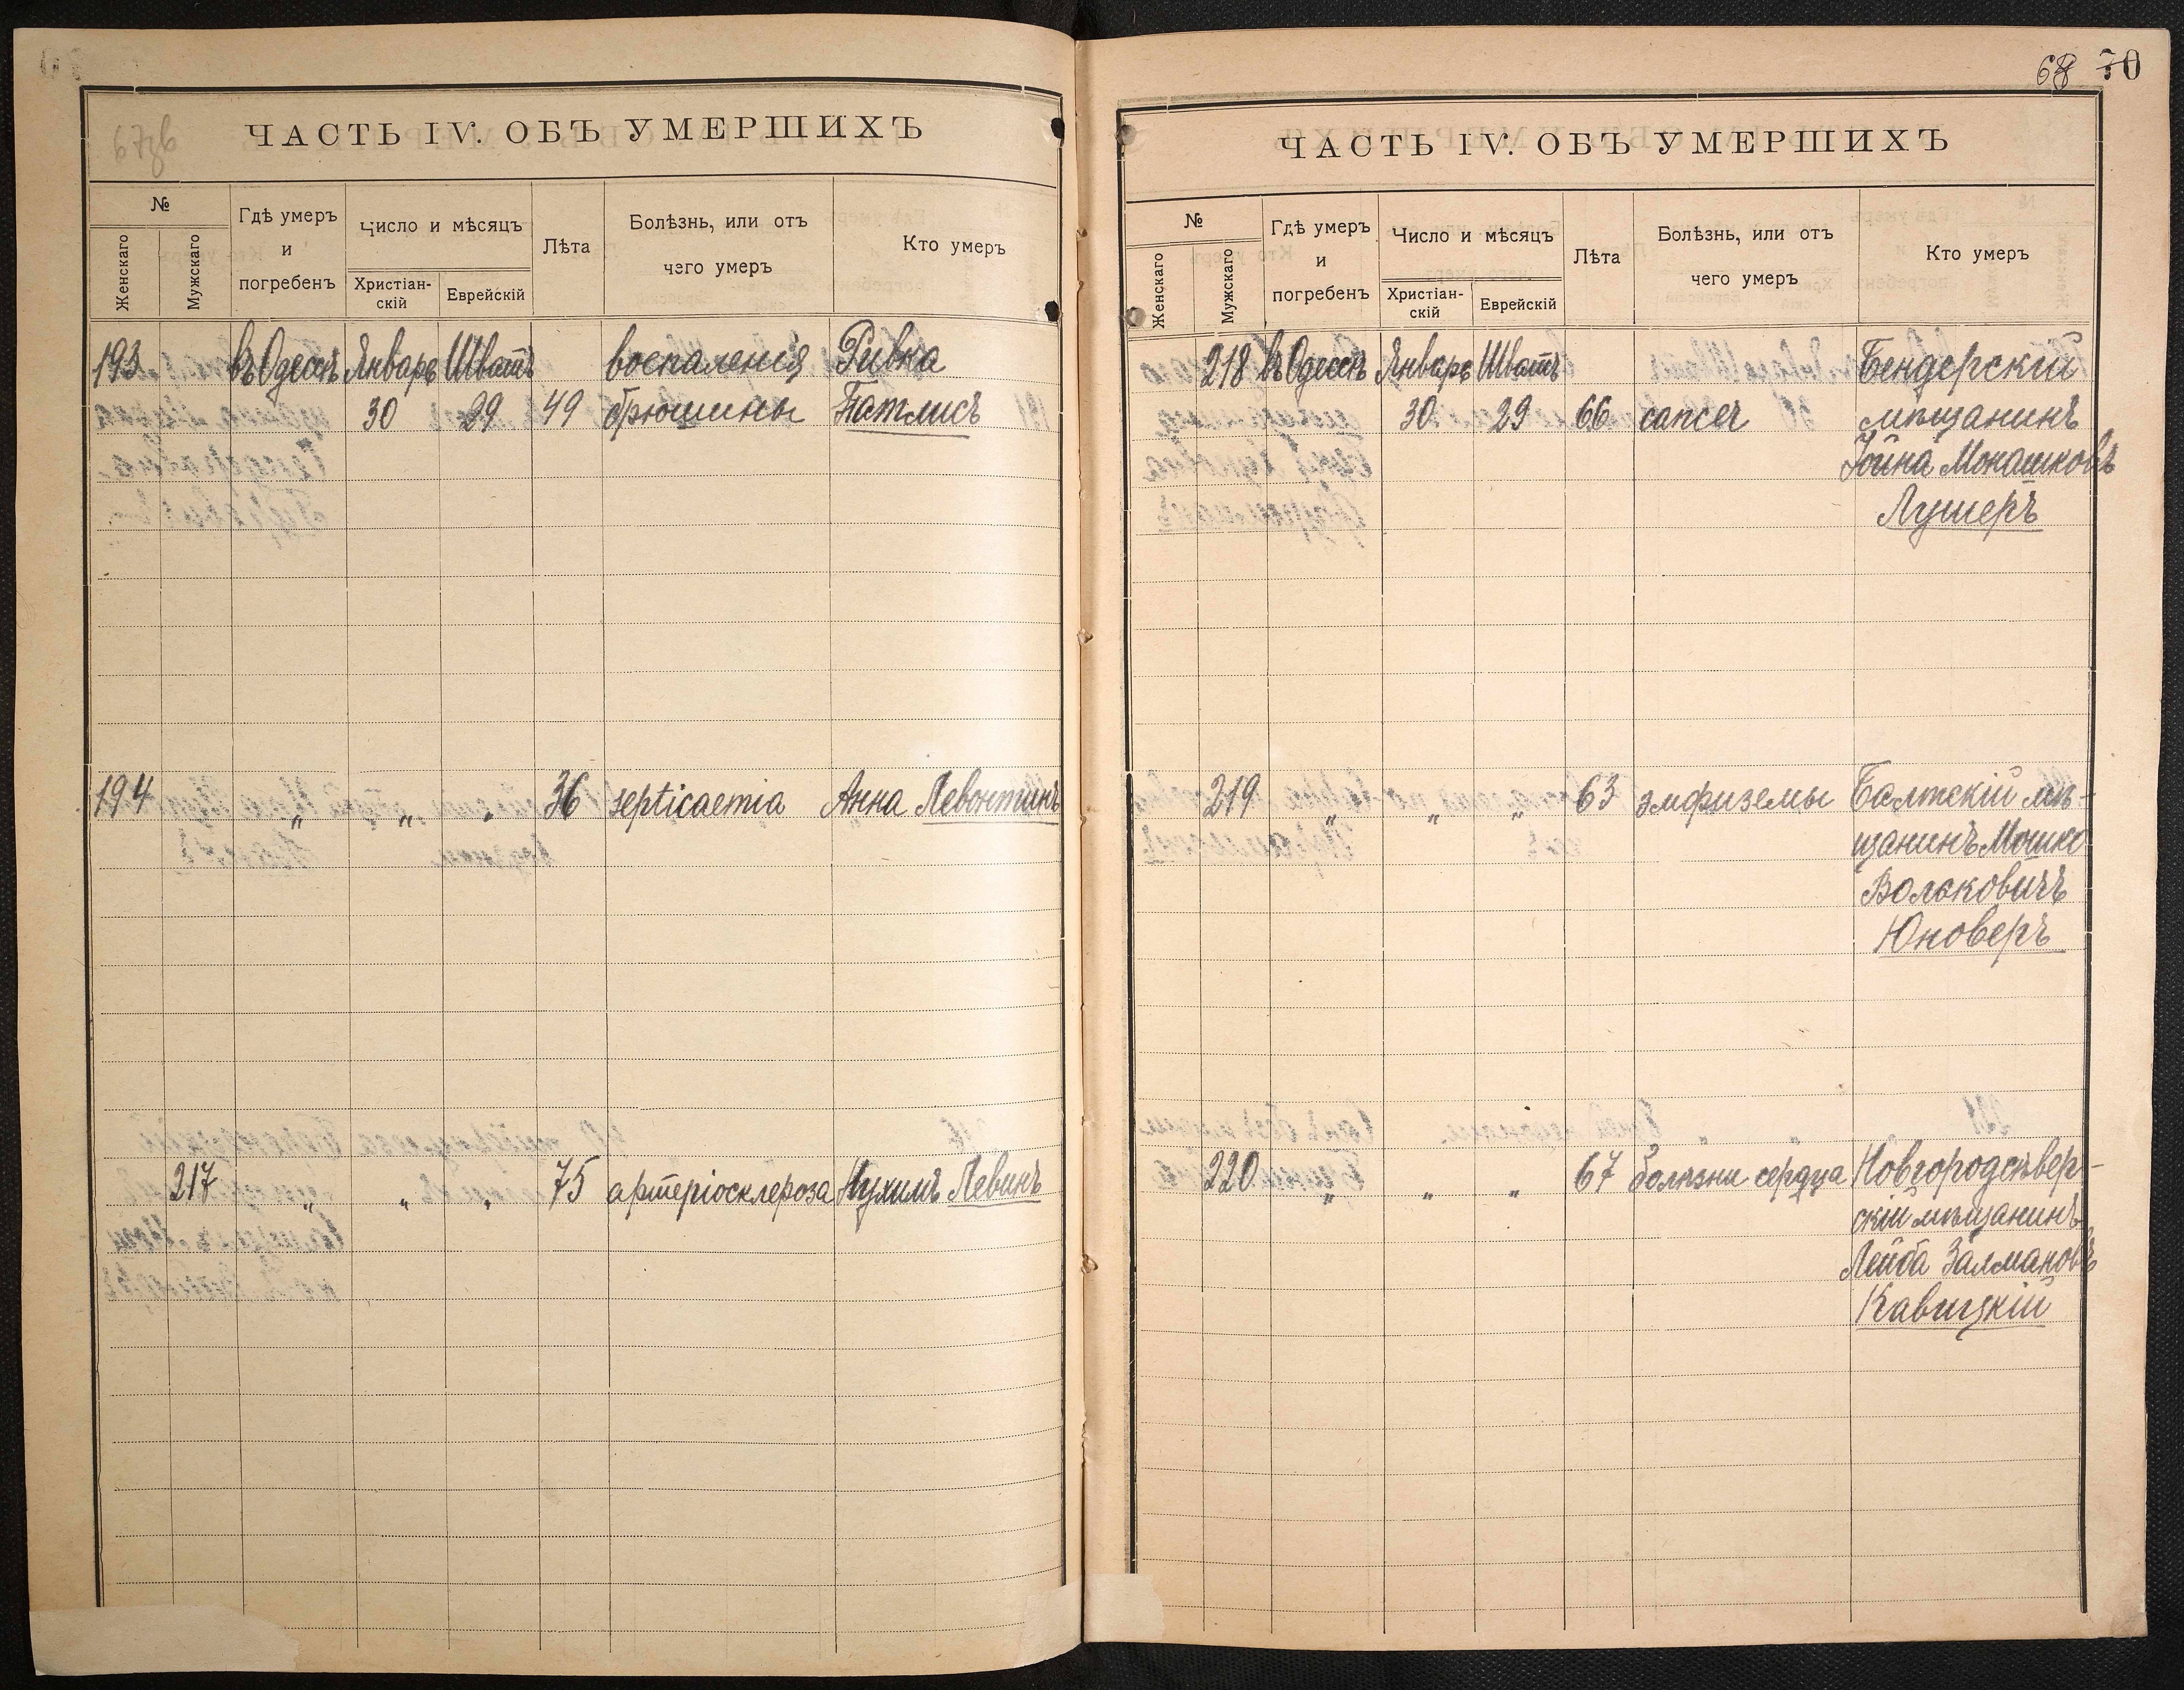 67зв
ЧАСТЬ IV. ОБЪ УМЕРШИХЪ
№
Женскаго
Мужскаго
Гдѣ умеръ
и
погребенъ
Число и мѣсяцъ
Христіан-
скій
Еврейскій
Лѣта
Болѣзнь, или отъ
чего умеръ
Кто умеръ
193 въ Одессѣ Январь Шватъ воспаленія Ривка
30 29 49 брюшины Патлисъ
194 „ „ „ 36 septicaemia Анна Левонтинъ
217 „ „ „ 75 артеріосклероза Нухимъ Левинъ
68 70
ЧАСТЬ IV. ОБЪ УМЕРШИХЪ
№
Женскаго
Мужскаго
Гдѣ умеръ
и
погребенъ
Число и мѣсяцъ
Христіан-
скій
Еврейскій
Лѣта
Болѣзнь, или отъ
чего умеръ
Кто умеръ
218 въ Одессѣ Январь Шватъ Бендерскій
30 29 66 cancer мѣщанинъ
Іойна Монашковъ
Лушеръ
219 „ „ „ 63 эмфиземы Балтскій мѣ-
щанинъ Мошко
Вольковичъ
Юноверъ
220 „ „ „ 67 болѣзни сердца Новгородсѣвер-
скій мѣщанинъ
Лейба Залмановъ
Кавицкій